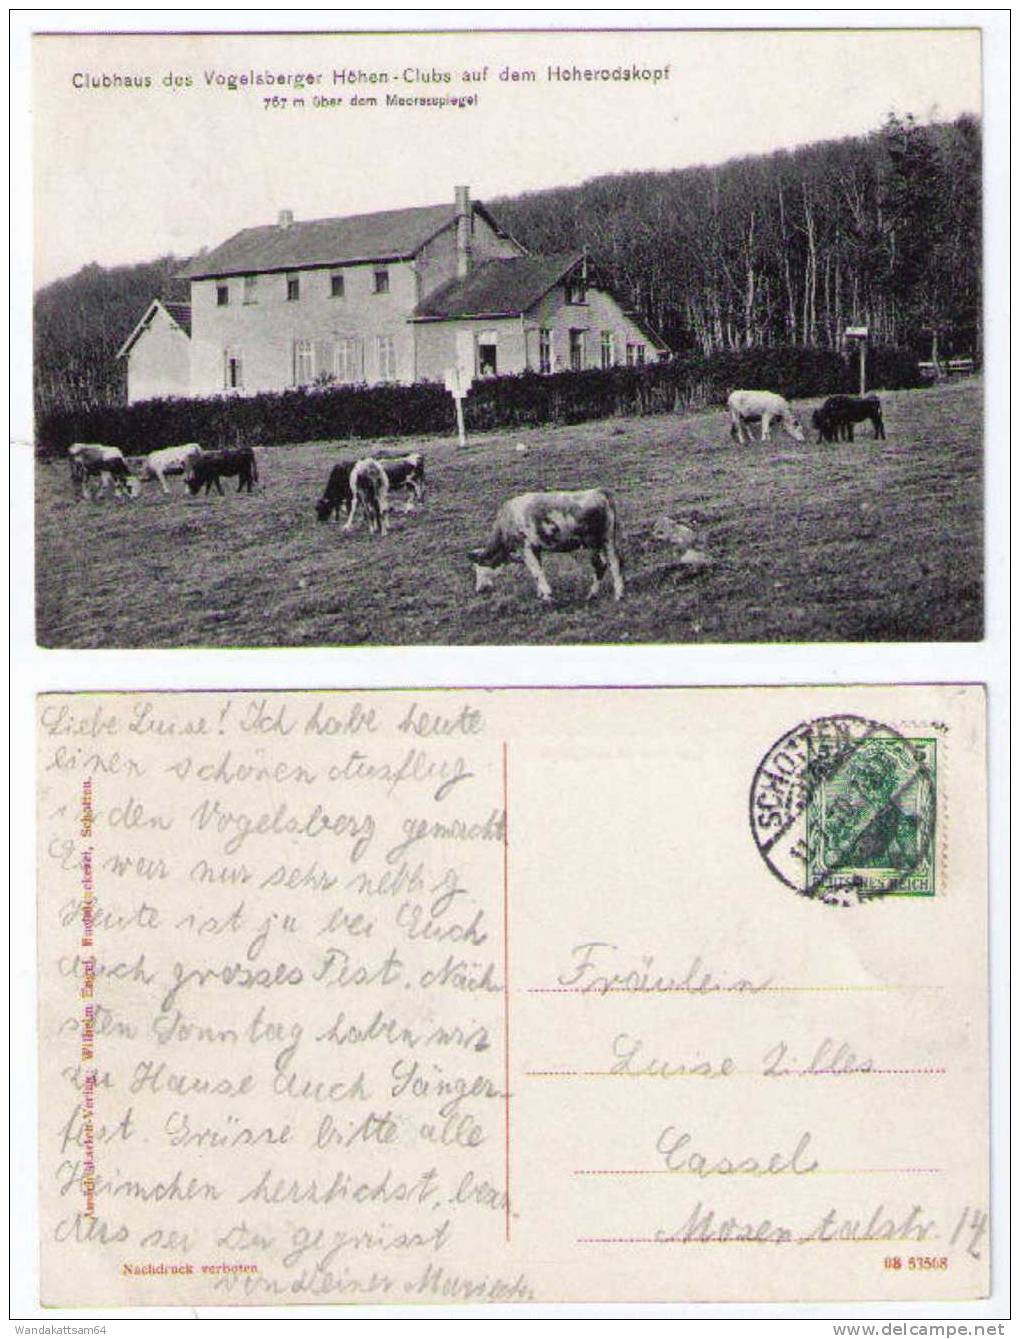 Clubhaus des Vogelsberger Höhen-Clubs auf dem Hoherodskopf
767 m über dem Meeresspiegel
Liebe Luise! Ich habe heute
einen schönen Ausflug
in den Vogelsberg gemacht.
Es war nur sehr neblig
Heute ist ja bei Euch
auch grosses Fest. Näch-
sten Sonntag haben wir
zu Hause auch Sänger-
fest. Grüsse bitte alle
Heimchen herzlichst, beson-
ders sei Du gegrüsst
von Deiner
Ansichtskarten-Verlag: Wilhelm Engel, Buchdruckerei, Schotten.
Nachdruck verboten
SCHOTTEN
5
DEUTSCHES REICH
Fräulein
Luise Zilles
Cassel
Mosentalstr. 14
08 53568
Wandakattsam64
delcampe.net